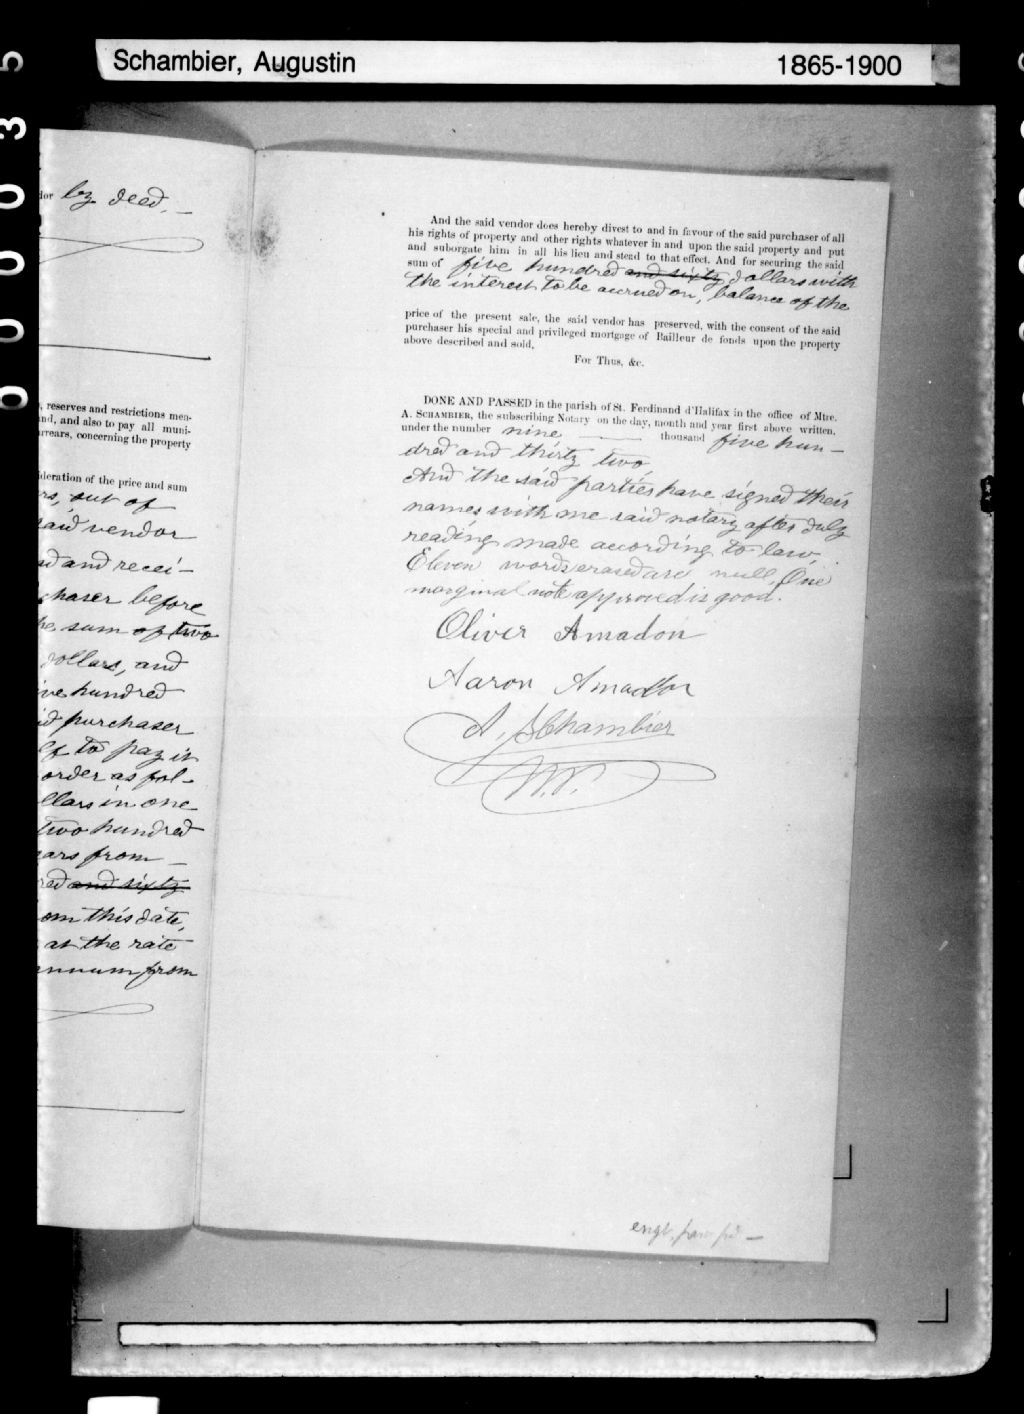 Schambier, Augustin 1865-1900
00035
dor by deed, —
, reserves and restrictions men-
and, and also to pay all muni-
rrears, concerning the property
ideration of the price and sum
rs, out of
said vendor
ed and recei-
chaser before
he sum of two
dollars, and
ive hundred
id purchaser
lf to pay it
order as fol-
llars in one
two hundred
ears from —
red and sixty
om this date,
at the rate
annum from
And the said vendor does hereby divest to and in favour of the said purchaser of all
his rights of property and other rights whatever in and upon the said property and put
and suborgate him in all his lieu and stead to that effect. And for securing the said
sum of five hundred and sixty dollars with
the interest to be accrued on, balance of the
price of the present sale, the said vendor has preserved, with the consent of the said
purchaser his special and privileged mortgage of Bailleur de fonds upon the property
above described and sold.
For Thus, &c.
DONE AND PASSED in the parish of St. Ferdinand d'Halifax in the office of Mtre.
A. SCHAMBIER, the subscribing Notary on the day, month and year first above written,
under the number nine — thousand five hun-
dred and thirty two,
And the said parties have signed their
names with me said notary after duly
reading made according to law,
Eleven words erased are null, One
marginal note approved is good.
Oliver Amadon
Aaron Amadon
A. Schambier
N.P.